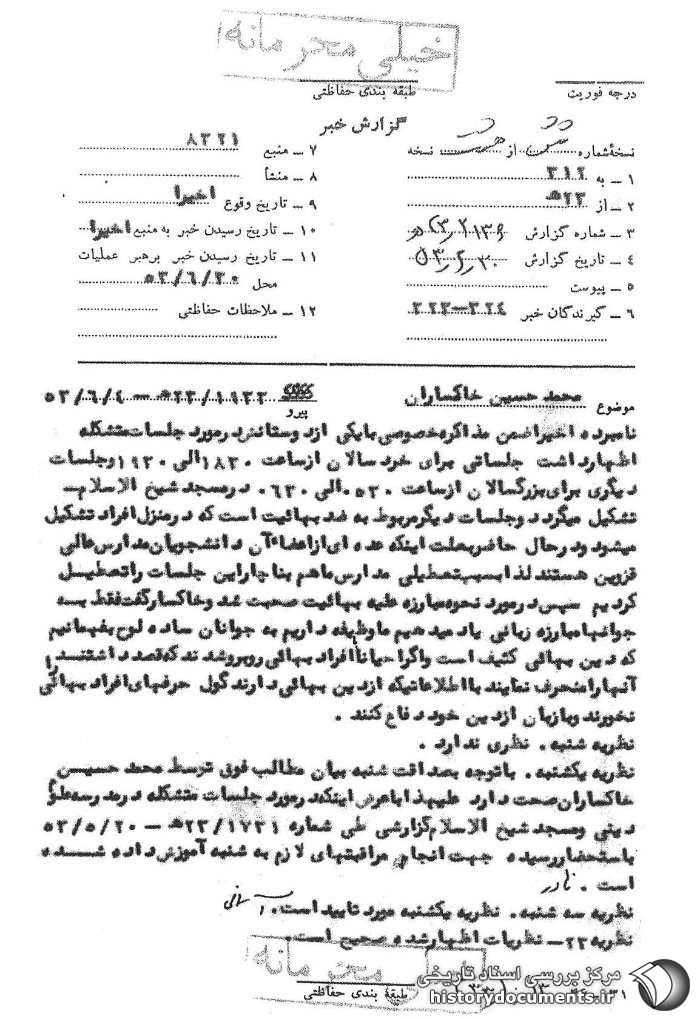 خیلی محرمانه
درجه فوریت
طبقه بندی حفاظتی
گزارش خبر
نسخهٔ شماره از نسخه
۱ ـ به ۳۱۲
۲ ـ از ۲۳ﻫ
۳ ـ شماره گزارش
۴ ـ تاریخ گزارش
۵ ـ پیوست
۶ ـ گیرندگان خبر ۳۲۴ـ۲۲۲
۷ ـ منبع ۸۲۲۱
۸ ـ منشأ
۹ ـ تاریخ وقوع اخیرا
۱۰ ـ تاریخ رسیدن خبر به منبع اخیرا
۱۱ ـ تاریخ رسیدن خبر برهبر عملیات
محل ۵۳/۶/۲۰
۱۲ ـ ملاحظات حفاظتی
موضوع محمد حسین خاکساران
پیرو ۱۹۲۲/۲۳ﻫ ـ ۵۳/۶/۴
نامبرده اخیراضمن مذاکره خصوصی بایکی ازدوستانش درمورد جلسات متشکله
اظهارداشت جلساتی برای خردسالان ازساعت ۱۸۳۰ الی ۱۹۳۰ وجلسات
دیگری برای بزرگسالان ازساعت ۰۵۳۰ الی ۰۶۳۰ درمسجد شیخ الاسلام ـ
تشکیل میگردد وجلسات دیگرمربوط به ضد بهائیت است که درمنزل افراد تشکیل
میشود ودرحال حاضربعلت اینکه عده ای ازاعضاء آن دانشجویان مدارس عالی
قزوین هستند لذا بسبب تعطیلی مدارس ماهم بناچاراین جلسات راتعطیل
کردیم سپس درمورد نحوه مبارزه علیه بهائیت صحبت شد وخاکسارگفت فقط به
جوانها مبارزه زبانی یاد میدهیم ما وظیفه داریم به جوانان ساده لوح بفهمانیم
که دین بهائی کثیف است واگراحیانا افراد بهائی روبروشدند که قصد داشتند
آنهارامنحرف نمایند بااطلاعاتیکه ازدین بهائی دارند گول حرفهای افراد بهائی را
نخورند وبازبان ازدین خود دفاع کنند .
نظریه شنبه . نظری ندارد .
نظریه یکشنبه . باتوجه بصداقت شنبه بیان مطالب فوق توسط محمد حسین
خاکساران صحت دارد علیهذا باعرض اینکه درمورد جلسات متشکله درمدرسه علوم
دینی ومسجد شیخ الاسلام گزارشی طی شماره ۱۷۳۱/۲۳ﻫ ـ ۵۳/۵/۲۰
باستحضاررسیده جهت انجام مراقبتهای لازم به شنبه آموزش داده شده
است . نادر
نظریه سه شنبه . نظریه یکشنبه مورد تایید است .
نظریه ۲۳ ـ نظریات اظهارشده صحیح است .
طبقهٔ بندی حفاظتی
مرکز بررسی اسناد تاریخی
historydocuments.ir